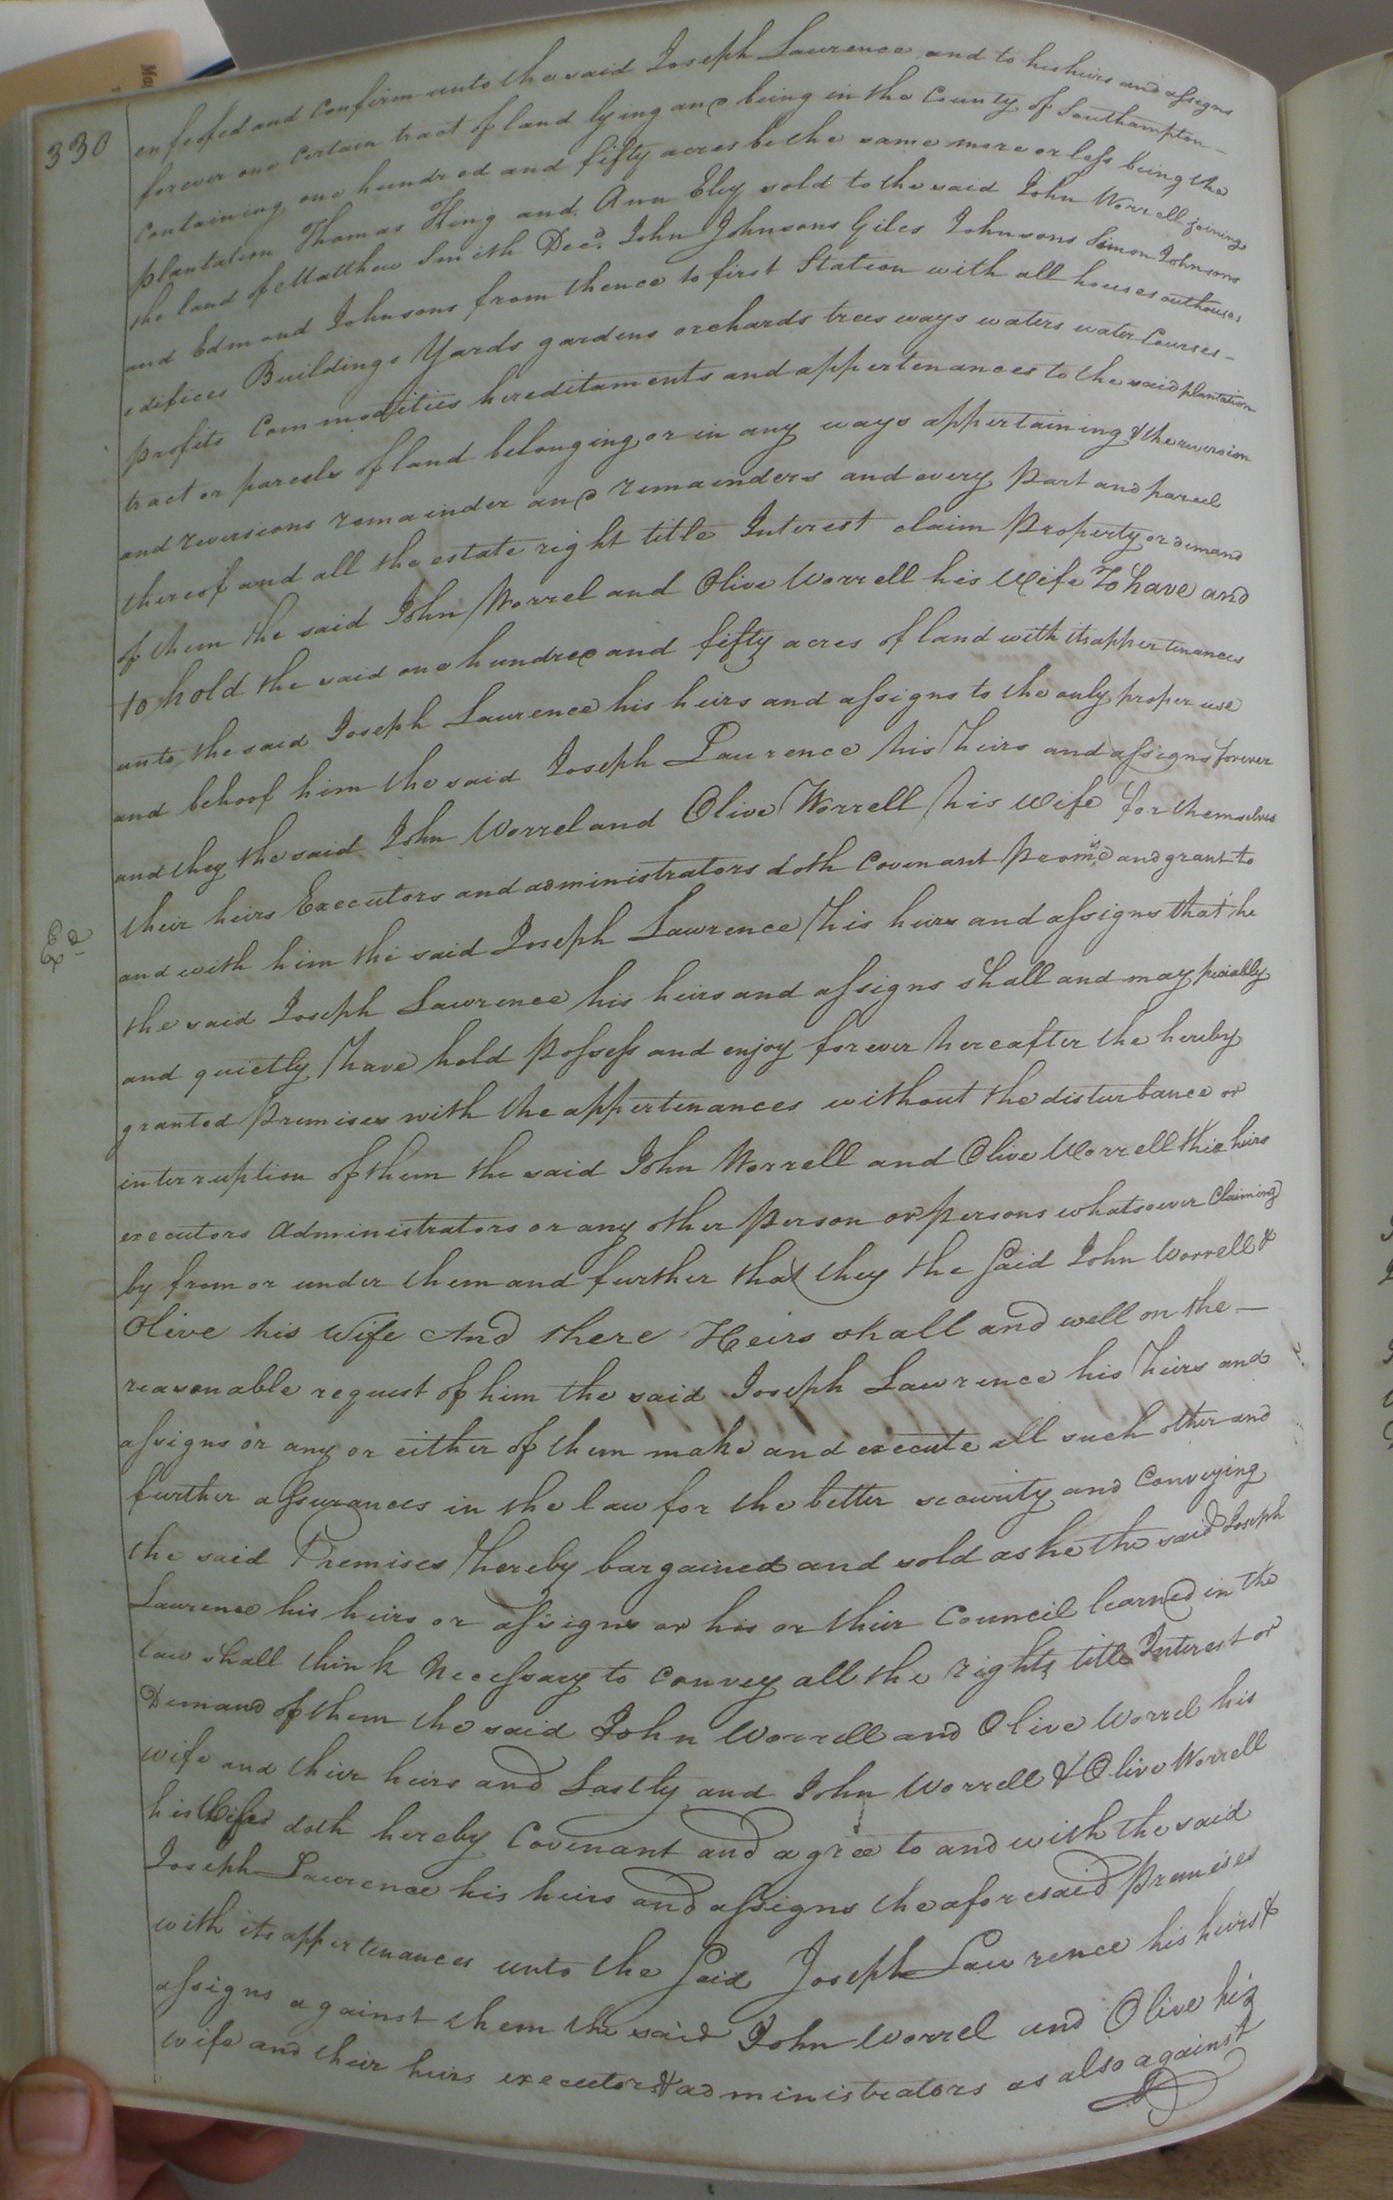 330
enfeofed and Confirm unto the said Joseph Lawrence and to his heirs and assigns
forever one Certain tract of land lying and being in the County of Southampton –
Containing one hundred and fifty acres be the same more or less being the
plantation Thomas King and Ann Eley sold to the said John Worrell joining
the land of Matthew Smith Decd. John Johnsons Giles Johnsons Simon Johnsons
and Edmond Johnsons from thence to first Station with all houses outhouses
edifices Buildings Yards gardens orchards trees ways waters water Courses –
profits Commodities hereditaments and appertenances to the said plantation
tract or parcels of land belonging or in any ways appertaining & the reversion
and reversions remainder and remainders and every part and parcel
thereof and all the estate right title Interest claim Property or demand
of them the said John Worrel and Olive Worrell his Wife To have and
to hold the said one hundred and fifty acres of land with its appertenances
unto the said Joseph Lawrence his heirs and assigns to the only proper use
and behoof him the said Joseph Lawrence his heirs and assigns forever
and they the said John Worrel and Olive Worrell his Wife for themselves
their heirs Executors and administrators doth Covenant Promise and grant to
and with him the said Joseph Lawrence his heirs and assigns that he
Exd
the said Joseph Lawrence his heirs and assigns shall and may peicably
and quietly have hold Possess and enjoy forever hereafter the hereby
granted Premises with the appertenances without the disturbance or
interruption of them the said John Worrell and Olive Worrell their heirs
executors administrators or any other person or persons whatsoever Claiming
by from or under them and further that they the said John Worrell &
Olive his Wife And there Heirs shall and well on the –
reasonable request of him the said Joseph Lawrence his heirs and
assigns or any or either of them make and execute all such other and
further assurances in the law for the better security and Conveying
the said Premises hereby bargained and sold as he the said Joseph
Lawrence his heirs or assigns or his or their Council learned in the
law shall think Necessary to Convey all the rights title Interest or
Demand of them the said John Worrell and Olive Worrel his
wife and their heirs and Lastly and John Worrell & Olive Worrell
his Wife doth hereby Covenant and agree to and with the said
Joseph Lawrence his heirs and assigns the aforesaid Premises
with its appertenances unto the Said Joseph Lawrence his heirs &
assigns against them the said John Worrel and Olive his
wife and their heirs executors & administrators as also against